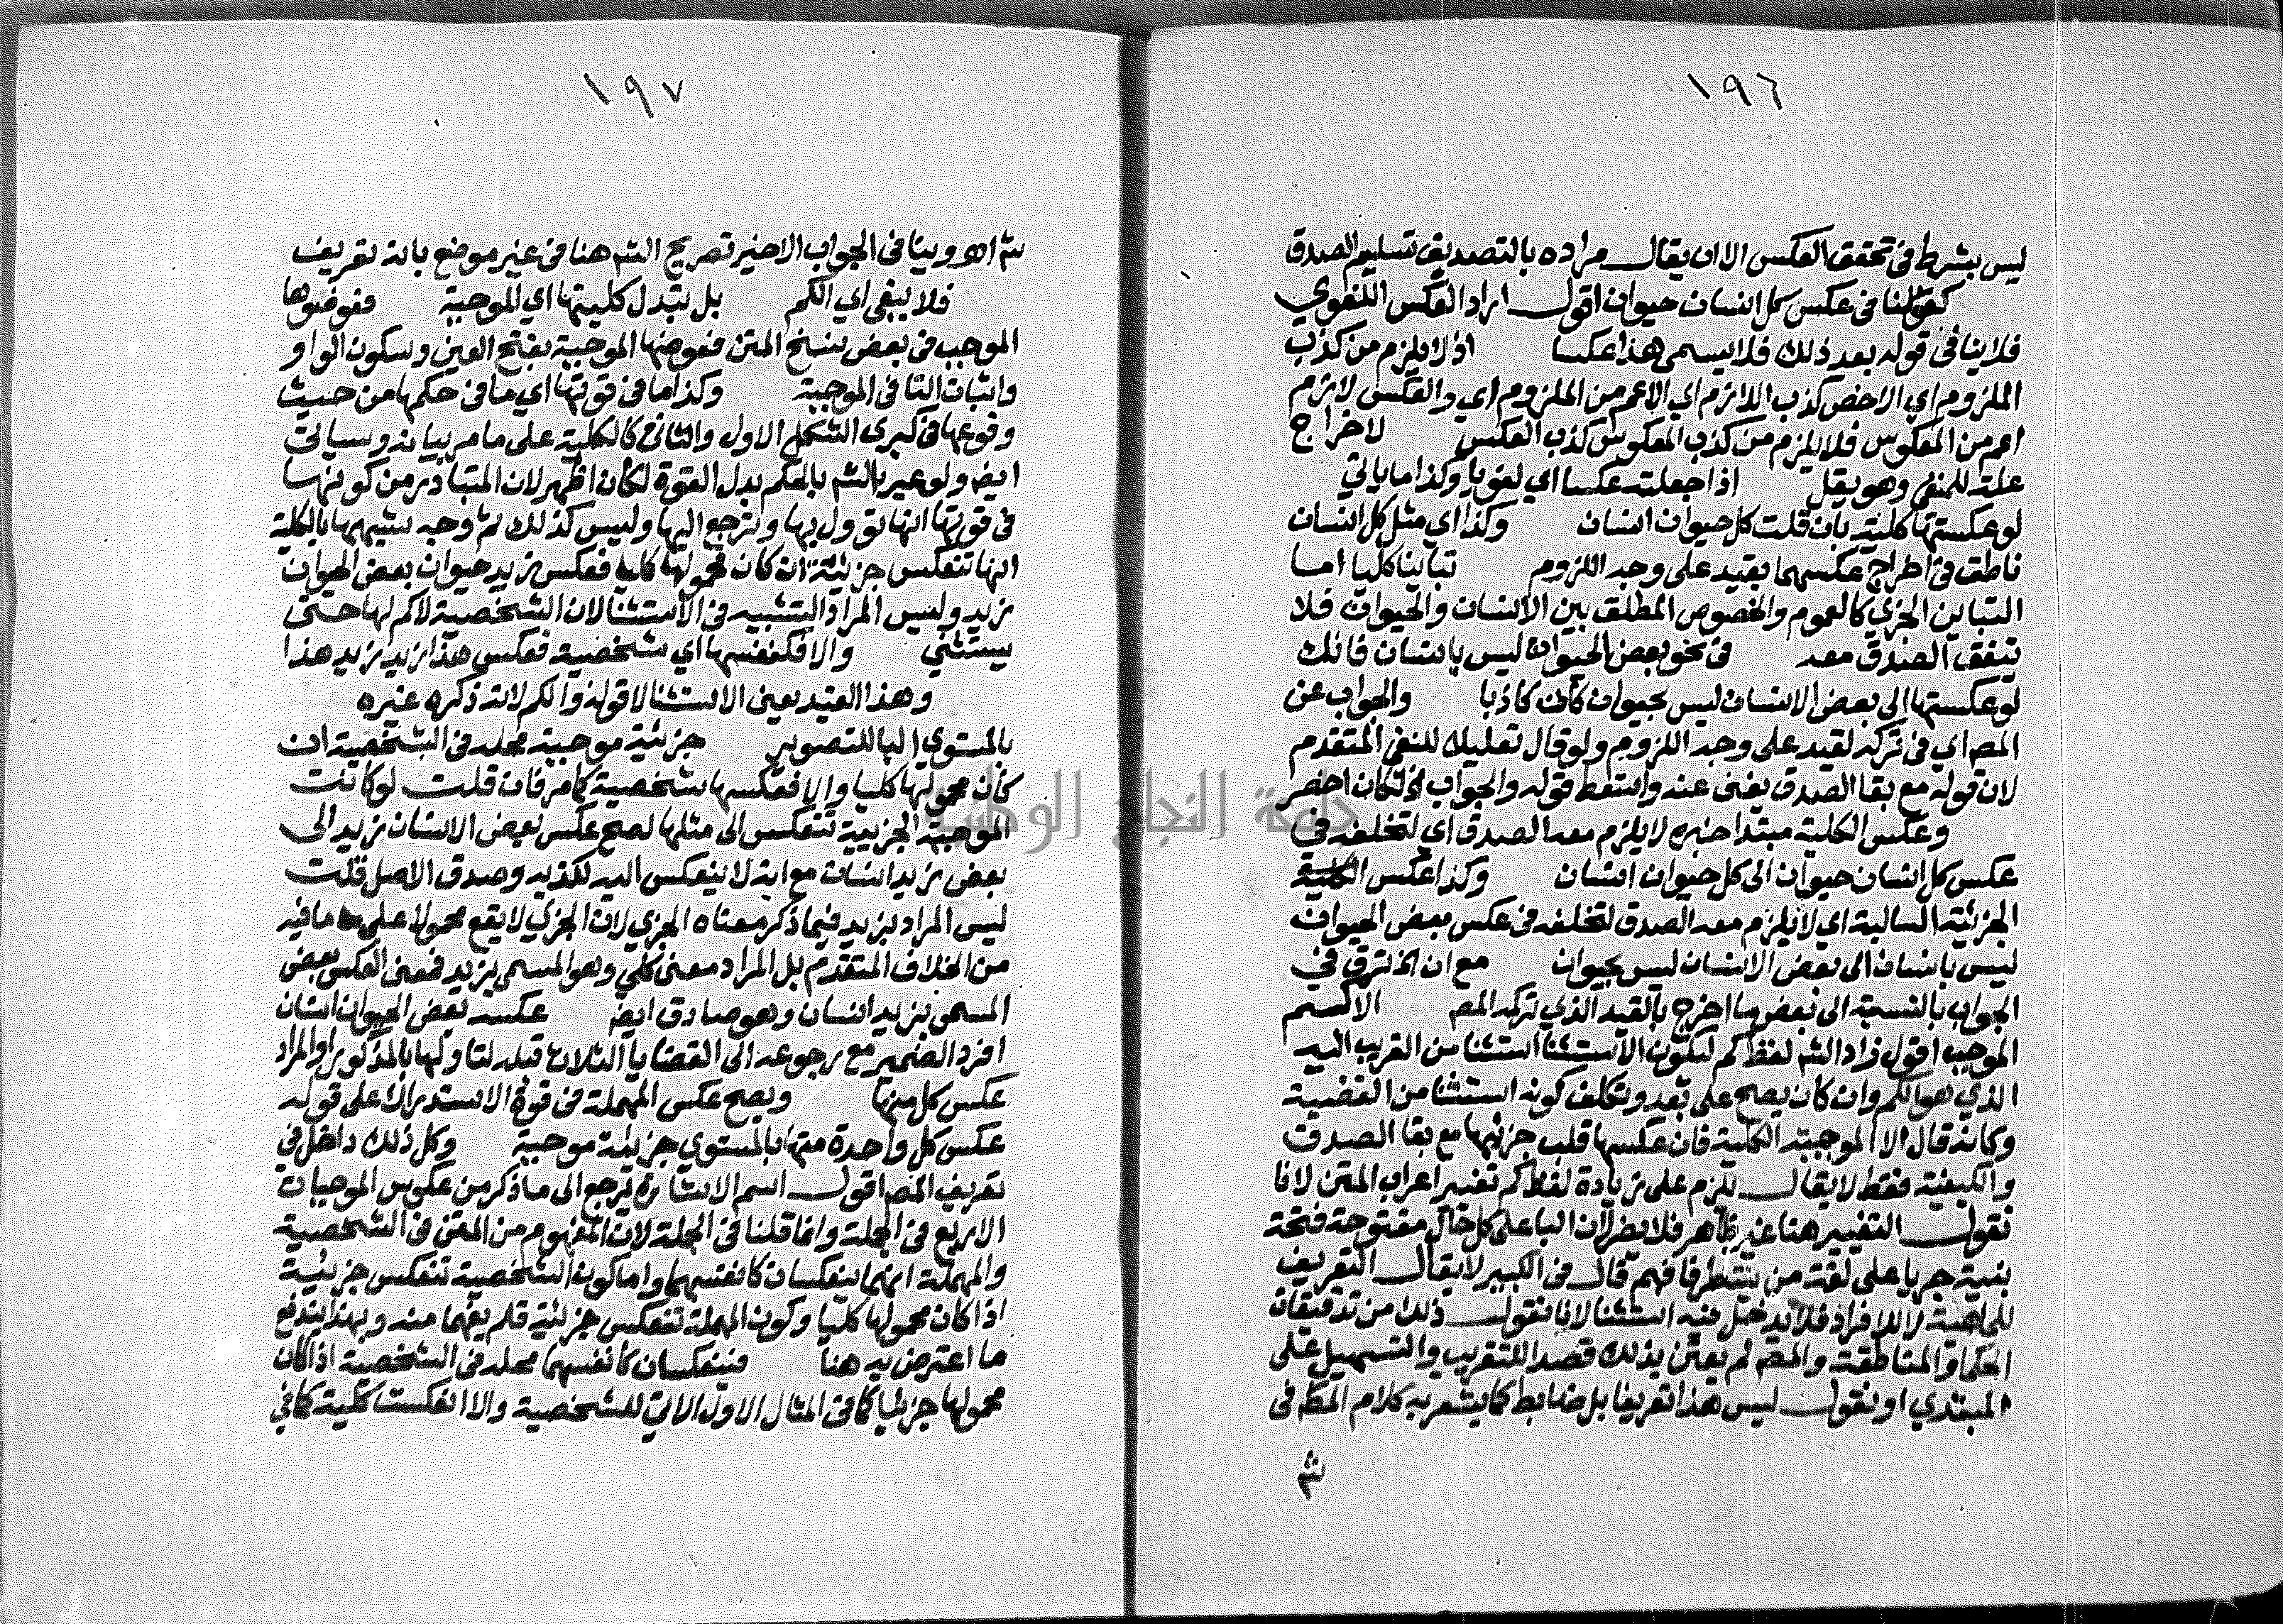 ١٩٦
ليس بشرط فى تحقق العكس الا ان يقال مراده بالتصديق تسليم الصدق
كقولنا فى عكس كل انسان حيوان اقول اراد العكس اللغوي
فلا ينافى قوله بعد ذلك فلا يسمى هذا عكسا اذ لا يلزم من كذب
الملزوم اي الاخص كذب اللازم اي الاعم من الملزوم اي والعكس لازم
اعم من المعكوس فلا يلزم من كذب المعكوس كذب العكس لاخراج
علة للمنفى وهو يقل اذا جعلته عكسا اي لغويا وكذا ما ياتي
لو عكستها كلية بان قلت كل حيوان انسان وكذا اي مثل كل انسان
ناطق فى اخراج عكسهما بقيد على وجه اللزوم تباينا كليا اما
التباين الجزي كالعموم والخصوص المطلق بين الانسان والحيوان فلا
يتفق الصدق معه فى نحو بعض الحيوان ليس بانسان فانك
لو عكستها الى بعض الانسان ليس بحيوان كان كاذبا والجواب عن
المصـ اي فى تركه لقيد على وجه اللزوم ولو قال تعليلا للنفى المتقدم
لان قوله مع بقا الصدق يغنى عنه واسقط قوله والجواب الخ لكان اخصر
وعكس الكلية مبتدا خبره لا يلزم معه الصدق اي لتخلفه فى
عكس كل انسان حيوان الى كل حيوان انسان وكذا عكس
الجزئية السالبة اي لا يلزم معه الصدق لتخلفه فى عكس بعض الحيوان
ليس بانسان الى بعض الانسان ليس بحيوان مع ان الخ ترق فى
الجواب بالنسبة الى بعض ما اخرج بالقيد الذي تركه المصـ الا كم
الموجب اقول زاد الشـ لفظ كم ليكون الاستثنا استثنا من القريب اليه
الذي هو الكم وان كان يصح على بعد وتكلف كونه استثنا من القضية
وكانه قال الا الموجبة الكلية فان عكسها قلب جزئيها مع بقا الصدق
والكيفية فقط لا يقال يلزم على زيادة لفظ كم تغيير اعراب المتن لانا
نقول التغيير هنا غير ظاهر فلا يضر لان البا على كل حال مفتوحة فتحة
بنية جريا على لغة من ينتظر فافهم قال فى الكبير لا يقال التعريف
للماهية لا للافراد فلا يدخل فيه استثنا لانا نقول ذلك من تدقيقات
الحكما والمناطقة والمصـ لم يعتن بذلك قصدا للتقريب والتسهيل على
المبتدي او نقول ليس هذا تعريفا بل ضابط كما يشعر به كلام المصـ فى
ثم
١٩٧
ثم اهـ وينافى الجواب الاخير تصريح الشـ هنا فى غير موضع بانه تعريف
فلا يبقى اي الكم بل تبدل كليتها اي الموجبة فعوضوها
الموجب فى بعض نسخ المتن فعوضها الموجبة بفتح العين وسكون الواو
واثبات التا فى الموجبة وكذا ما فى قوتها اي ما فى حكمها من حيث
وقوعها فى كبرى الشكل الاول والثانى كالكلية على ما مر بيانه وسياتى
ايضـ ولو عبر الشـ بالحكم بدل القوة لكان اظهر لان المتبادر من كونها
فى قوتها انها تؤول بها وترجع اليها وليس كذلك ثم وجه شبهها بالكلية
انها تنعكس جزئية ان كان محمولها كليا فعكس زيد حيوان بعض الحيوان
زيد وليس المراد التشبيه فى الاستثنا لان الشخصية لا كم لها حتى
يستثنى والا فكنفسها اي شخصية فعكس هذا زيد زيد هذا
وهذا القيد يعنى الاستثنا لا قوله والكم لانه ذكره غيره
بالمستوي البا للتصوير جزئية موجبة محله فى الشخصية ان
كان محمولها كليا والا فعكسها شخصية كما مر فان قلت لو كانت
الموجبة الجزيية تنعكس الى مثلها لصح عكس بعض الانسان زيد الى
بعض زيد انسان مع انه لا ينعكس اليه لكذبه وصدق الاصل قلت
ليس المراد بزيد فيما ذكر معناه الجزي لان الجزي لا يقع محمولا على ما فيه
من الخلاف المتقدم بل المراد معنى كلي وهو المسمى بزيد فمعنى العكس بعض
المسمى بزيد انسان وهو صادق ايضـ عكسه بعض الحيوان انسان
افرد الضمير مع رجوعه الى القضايا الثلاث قبله لتاولها بالمذكور او المراد
عكس كل منها ويصح عكس المهملة فى قوة الاستدراك على قوله
عكس كل واحدة منها بالمستوي جزئية موجبة وكل ذلك داخل فى
تعريف المصـ اقول اسم الاشارة يرجع الى ما ذكر من عكوس الموجبات
الاربع فى الجملة وانما قلنا فى الجملة لان المفهوم من المتن فى الشخصية
والمهملة انهما ينعكسان كانفسهما واما كون الشخصية تنعكس جزئية
اذا كان محمولها كليا وكون المهملة تنعكس جزئية فلم يفهما منه وبهذا يندفع
ما اعترض به هنا فتنعكسان كانفسهما محله فى الشخصية اذا كان
محمولها جزئيا كما فى المثال الاول الاتي للشخصية والا انعكست كلية كما فى
جامعة النجاح الوطنية